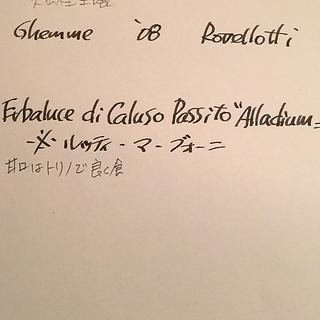 Ghemme '08 Rovellotti
Erbaluce di Caluso Passito "Alladium"
-※- ルッティ - マ - ブォーニ
甘口はトリノで良く食